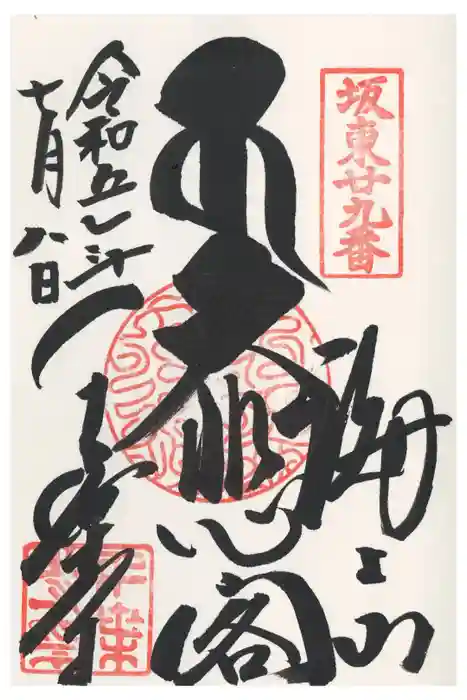 坂東廿九番
海上山
大悲閣
千葉寺
令和五年
七月八日